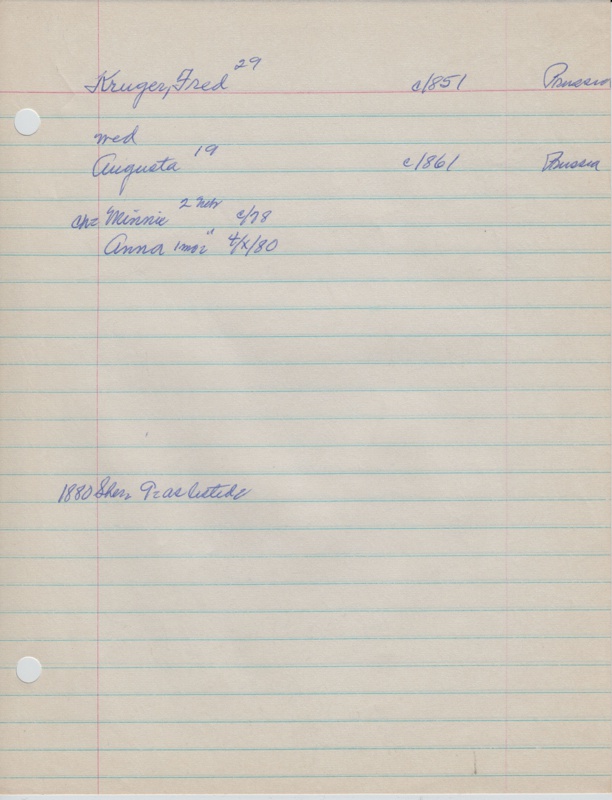 Kruger, Fred 29 c1851 Prussia
wed
Augusta 19 c1861 Prussia
ch= Minnie 2 Nebr c/78
Anna 1mo " 4/x/80
1880 Sher. as listed